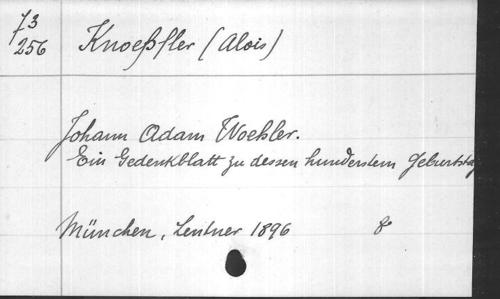 73
256
Knoeßfler (Alois)
Johann Adam Woehler.
Ein Gedenkblatt zu dessen hunderstem Geburtstag
München, Lentner 1896 8